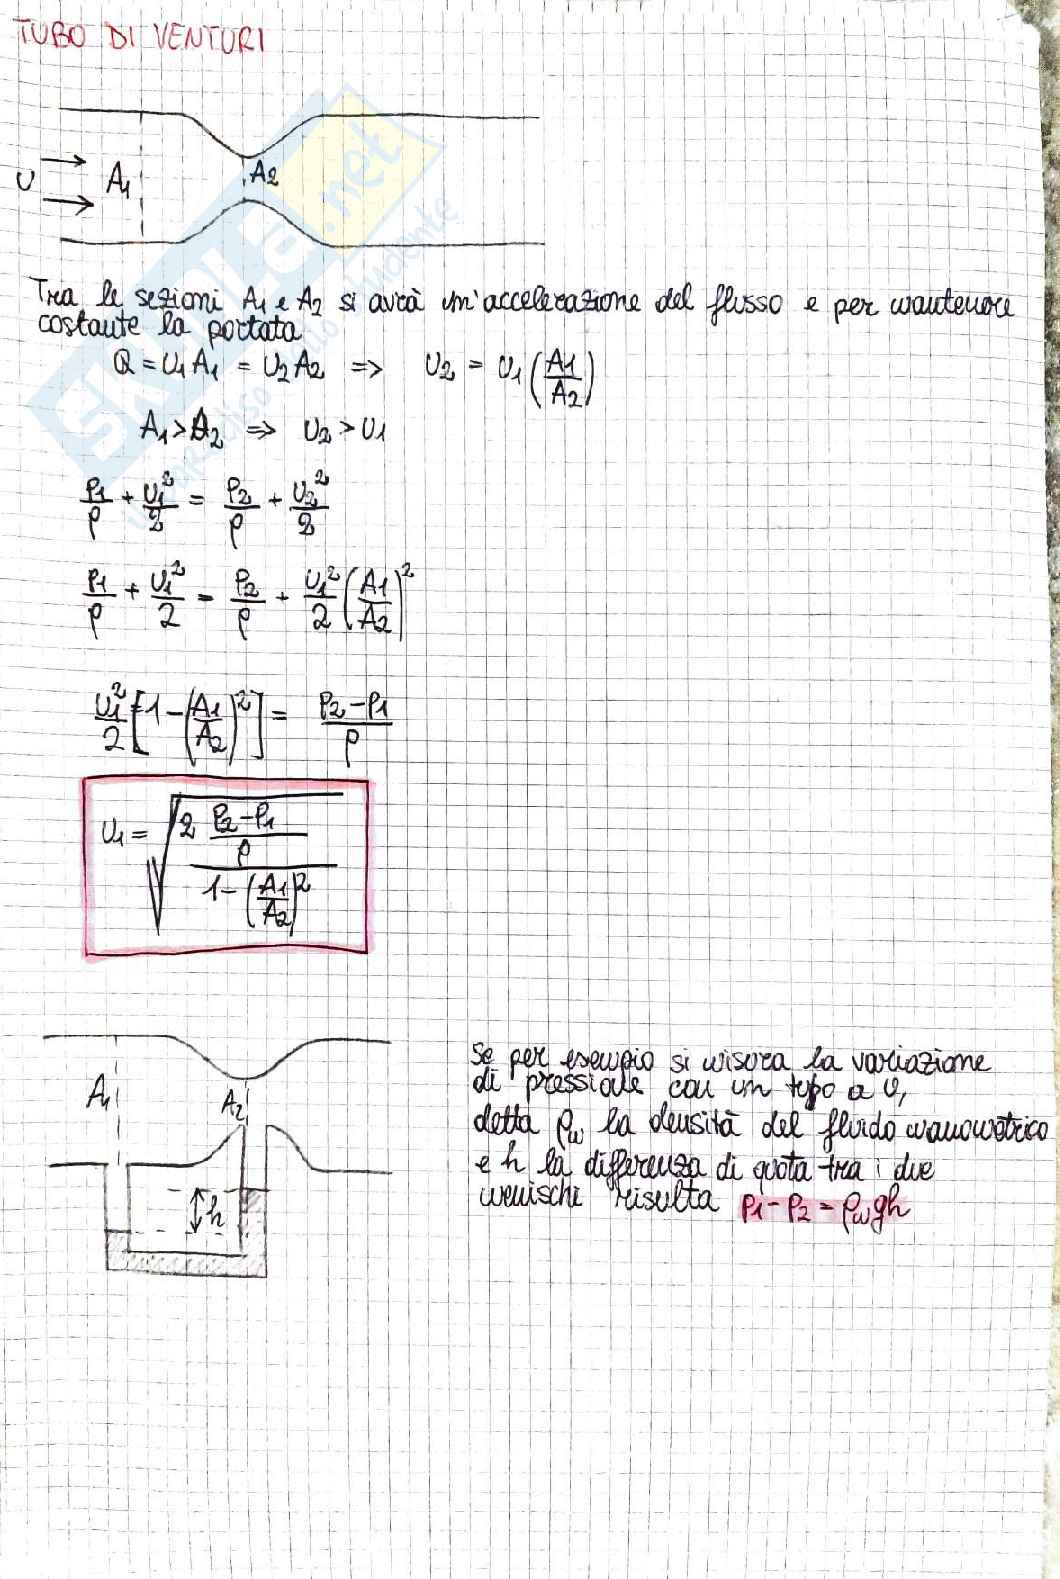 TUBO DI VENTURI
U A₁ A₂
Tra le sezioni A₁ e A₂ si avrà un'accelerazione del flusso e per mantenere
costante la portata
Q = U₁A₁ = U₂A₂ ⇒ U₂ = U₁(A₁/A₂)
A₁ > A₂ ⇒ U₂ > U₁
p₁/ρ + U₁²/2 = p₂/ρ + U₂²/2
p₁/ρ + U₁²/2 = p₂/ρ + U₁²/2 (A₁/A₂)²
U₁²/2 [1 - (A₁/A₂)²] = p₂-p₁/ρ
U₁ = √(2 (p₂-p₁)/ρ / (1-(A₁/A₂)²))
A₁ A₂
h
Se per esempio si misura la variazione
di pressione con un tubo a U,
detta ρm la densità del fluido manometrico
e h la differenza di quota tra i due
menischi risulta p₁-p₂ = ρm gh
SKUOLA.net